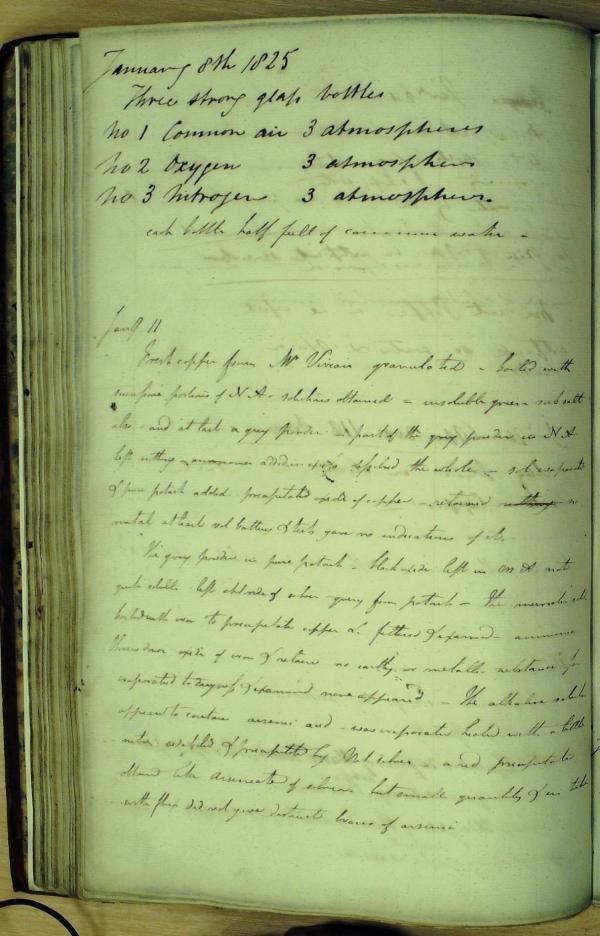 January 8th 1825
Three strong glass bottles
No 1 Common air 3 atmospheres
No 2 Oxygen 3 atmospheres
No 3 Nitrogen 3 atmospheres.
each bottle half full of common water -
11
Fresh copper from Mr Vivian granulated - boiled with
successive portions of N A - solutions obtained - insoluble green sub salt
also - and at last a grey powder - part of the grey powder in N A
left nothing - ammonia added in excess dissolved the whole - sol evaporated
& pure potash added precipitated oxide of copper - retained nothing no
metal at least sol battery & tests gave no indications of it.
The grey powder in pure potash - black oxide left in M A not
quite soluble left chloride of silver - query from potash - The muriatic sol
boiled with iron to precipitate copper & filtered & examined - ammonia
threw down oxide of iron & retained no earthy or metallic substance for
evaporated to dryness & examined none appeared - The alkaline solution
appeared to contain arsenic and - was evaporated heated with a little
nitre redissolved & precipitated by Nit silver - a red precipitate
obtained like arseniate of silver but small quantity & in tube
with flux did not give distinct traces of arsenic